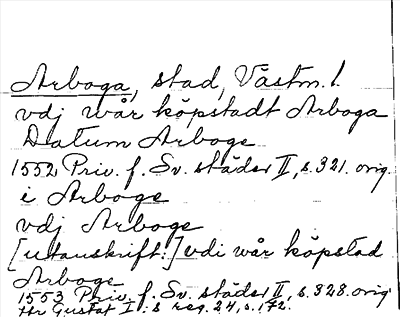 Arboga, stad, Västm. l.
vdj wår köpstadt Arboga
Datum Arboge
1552 Priv. f. Sv. städer II, s. 321. orig.
i Arboge
vdj Arboge
[utanskrift:] vdi wår köpstad
Arboge
1553 Priv. f. Sv. städer II, s. 328. orig
Hr Gustaf I:s reg. 24, s. 172.